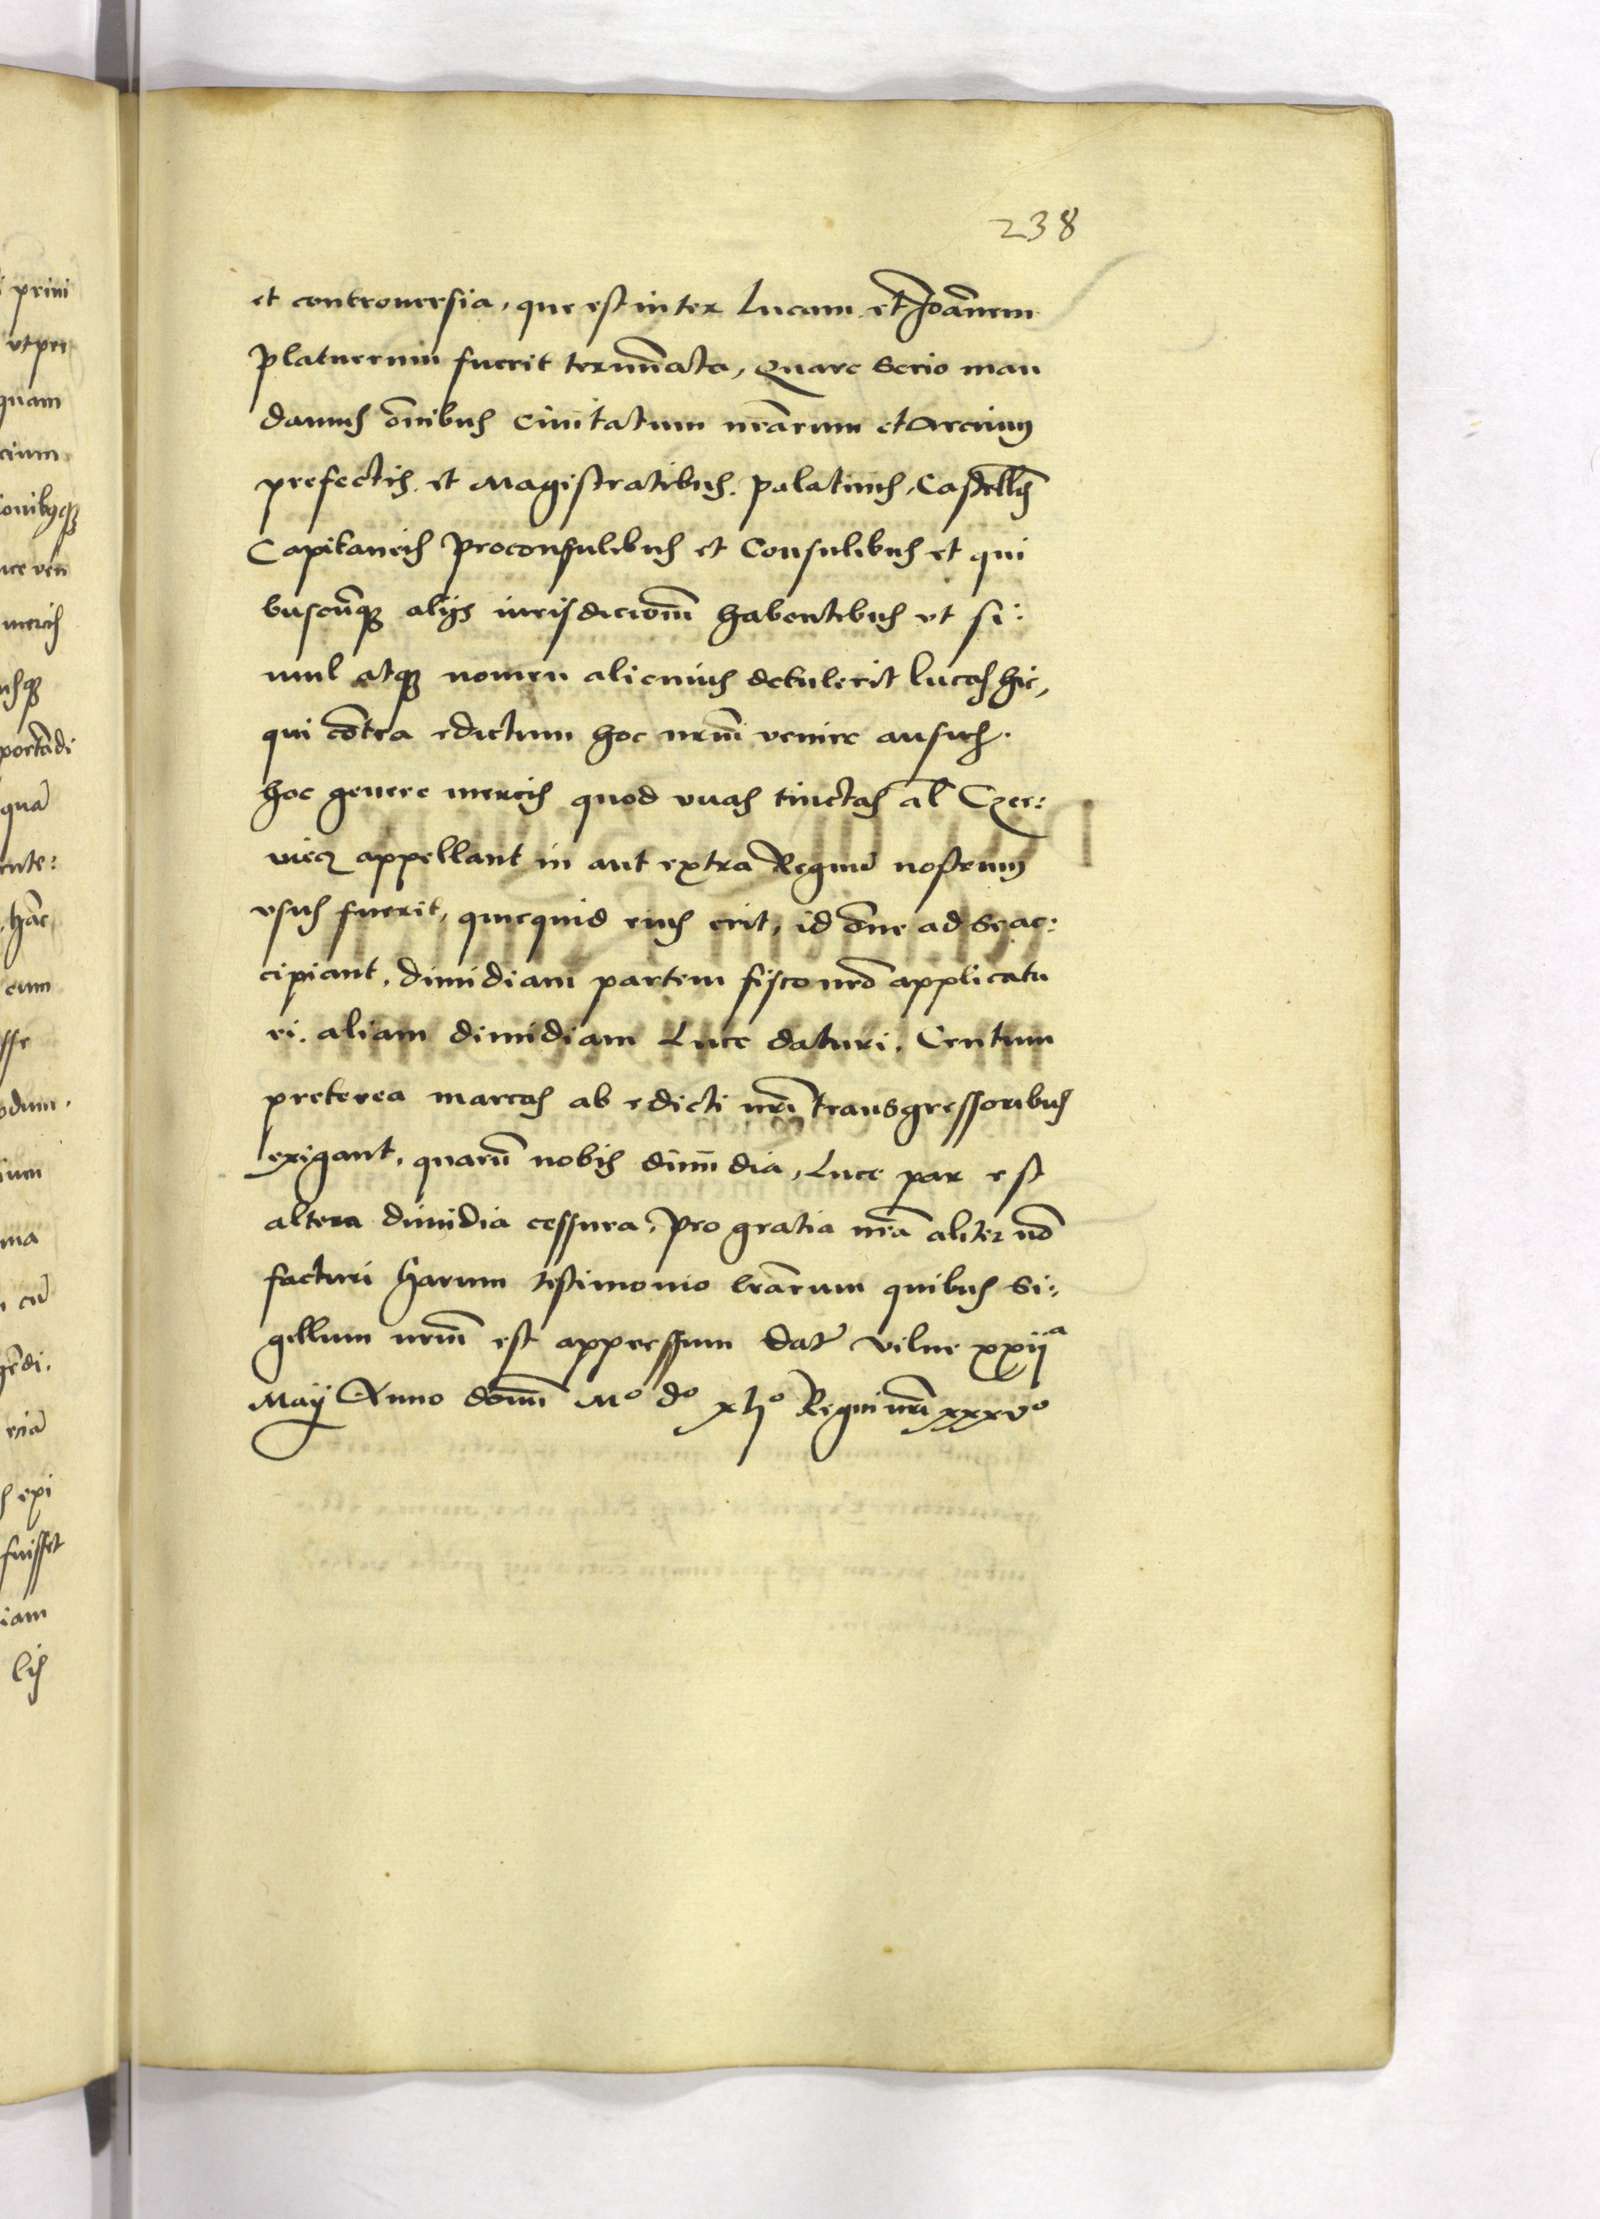 238
et controuersia, que est inter Lucam et Joānem
Platnerum fuerit termīnata, Quare serio man
damus ōnibus Ciuitatum nrārum et Arcium
prefectis et Magistratibus. Palatinis, Castellis
Capitaneis Proconsulibus et Consulibus et qui
buscūq; alijs iurisdicionē habentibus vt si:
mul atq; nomen alicuius detulerit lucas hic,
qui cōtra edictum hoc nrūm venire ausus.
hoc genere mercis quod vuas tinctas al Czer:
uiecz appellant in aut extra Regnū nostrum
vsus fuerit, quicquid eius erit, id ōne ad se ac:
cipiant, dimidiam partem fisco nrō applicatu
ri. aliam dimidiam Luce daturi. Centum
preterea marcas ab edicti nrī transgressoribus
exigant, quarū nobis dimīdia, Luce par est
altera dimidia cessura, Pro gratia nrā aliter nō
facturi harum testimonio lrārum quibus si:
gillum nrūm est appressum Dat Vilne xxija
Maij Anno domī Mo do xljo Regni nrī xxxvo
prini
vt per
quam
cium
onibusq;
uce ven
mercis
usq;
portādi
quā
ente:
hāc
cum
sse
odum.
ium
ma
cū
gēdi.
eciā
expi
fuisset
iam
lis